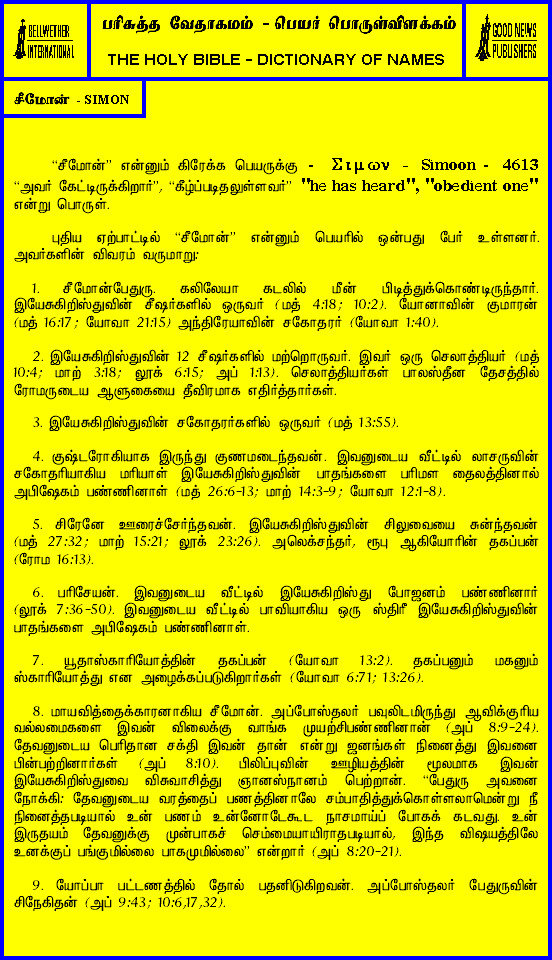 BELLWETHER
INTERNATIONAL
பரிசுத்த வேதாகமம் - பெயர் பொருள்விளக்கம்
THE HOLY BIBLE - DICTIONARY OF NAMES
GOOD NEWS
PUBLISHERS
சீமோன் - SIMON
“சீமோன்” என்னும் கிரேக்க பெயருக்கு - Σιμων - Simoon - 4613
“அவர் கேட்டிருக்கிறார்”, “கீழ்ப்படிதலுள்ளவர்” "he has heard", "obedient one"
என்று பொருள்.
புதிய ஏற்பாட்டில் “சீமோன்” என்னும் பெயரில் ஒன்பது பேர் உள்ளனர்.
அவர்களின் விவரம் வருமாறு:
1. சீமோன்பேதுரு. கலிலேயா கடலில் மீன் பிடித்துக்கொண்டிருந்தார்.
இயேசுகிறிஸ்துவின் சீஷர்களில் ஒருவர் (மத் 4:18; 10:2). யோனாவின் குமாரன்
(மத் 16:17; யோவா 21:15) அந்திரேயாவின் சகோதரர் (யோவா 1:40).
2. இயேசுகிறிஸ்துவின் 12 சீஷர்களில் மற்றொருவர். இவர் ஒரு செலாத்தியர் (மத்
10:4; மாற் 3:18; லூக் 6:15; அப் 1:13). செலாத்தியர்கள் பாலஸ்தீன தேசத்தில்
ரோமருடைய ஆளுகையை தீவிரமாக எதிர்த்தார்கள்.
3. இயேசுகிறிஸ்துவின் சகோதரர்களில் ஒருவர் (மத் 13:55).
4. குஷ்டரோகியாக இருந்து குணமடைந்தவன். இவனுடைய வீட்டில் லாசருவின்
சகோதரியாகிய மரியாள் இயேசுகிறிஸ்துவின் பாதங்களை பரிமள தைலத்தினால்
அபிஷேகம் பண்ணினாள் (மத் 26:6-13; மாற் 14:3-9; யோவா 12:1-8).
5. சிரேனே ஊரைச்சேர்ந்தவன். இயேசுகிறிஸ்துவின் சிலுவையை சுமந்தவன்
(மத் 27:32; மாற் 15:21; லூக் 23:26). அலெக்சந்தர், ரூபு ஆகியோரின் தகப்பன்
(ரோம 16:13).
6. பரிசேயன். இவனுடைய வீட்டில் இயேசுகிறிஸ்து போஜனம் பண்ணினார்
(லூக் 7:36-50). இவனுடைய வீட்டில் பாவியாகிய ஒரு ஸ்திரீ இயேசுகிறிஸ்துவின்
பாதங்களை அபிஷேகம் பண்ணினாள்.
7. யூதாஸ்காரியோத்தின் தகப்பன் (யோவா 13:2). தகப்பனும் மகனும்
ஸ்காரியோத்து என அழைக்கப்படுகிறார்கள் (யோவா 6:71; 13:26).
8. மாயவித்தைக்காரனாகிய சீமோன். அப்போஸ்தலர் பவுலிடமிருந்து ஆவிக்குரிய
வல்லமைகளை இவன் விலைக்கு வாங்க முயற்சிபண்ணினான் (அப் 8:9-24).
தேவனுடைய பெரிதான சக்தி இவன் தான் என்று ஜனங்கள் நினைத்து இவனை
பின்பற்றினார்கள் (அப் 8:10). பிலிப்புவின் ஊழியத்தின் மூலமாக இவன்
இயேசுகிறிஸ்துவை விசுவாசித்து ஞானஸ்நானம் பெற்றான். “பேதுரு அவனை
நோக்கி: தேவனுடைய வரத்தைப் பணத்தினாலே சம்பாதித்துக்கொள்ளலாமென்று நீ
நினைத்தபடியால் உன் பணம் உன்னோடேகூட நாசமாய்ப் போகக் கடவது. உன்
இருதயம் தேவனுக்கு முன்பாகச் செம்மையாயிராதபடியால், இந்த விஷயத்திலே
உனக்குப் பங்குமில்லை பாகமுமில்லை” என்றார் (அப் 8:20-21).
9. யோப்பா பட்டணத்தில் தோல் பதனிடுகிறவன். அப்போஸ்தலர் பேதுருவின்
சிநேகிதன் (அப் 9:43; 10:6,17,32).